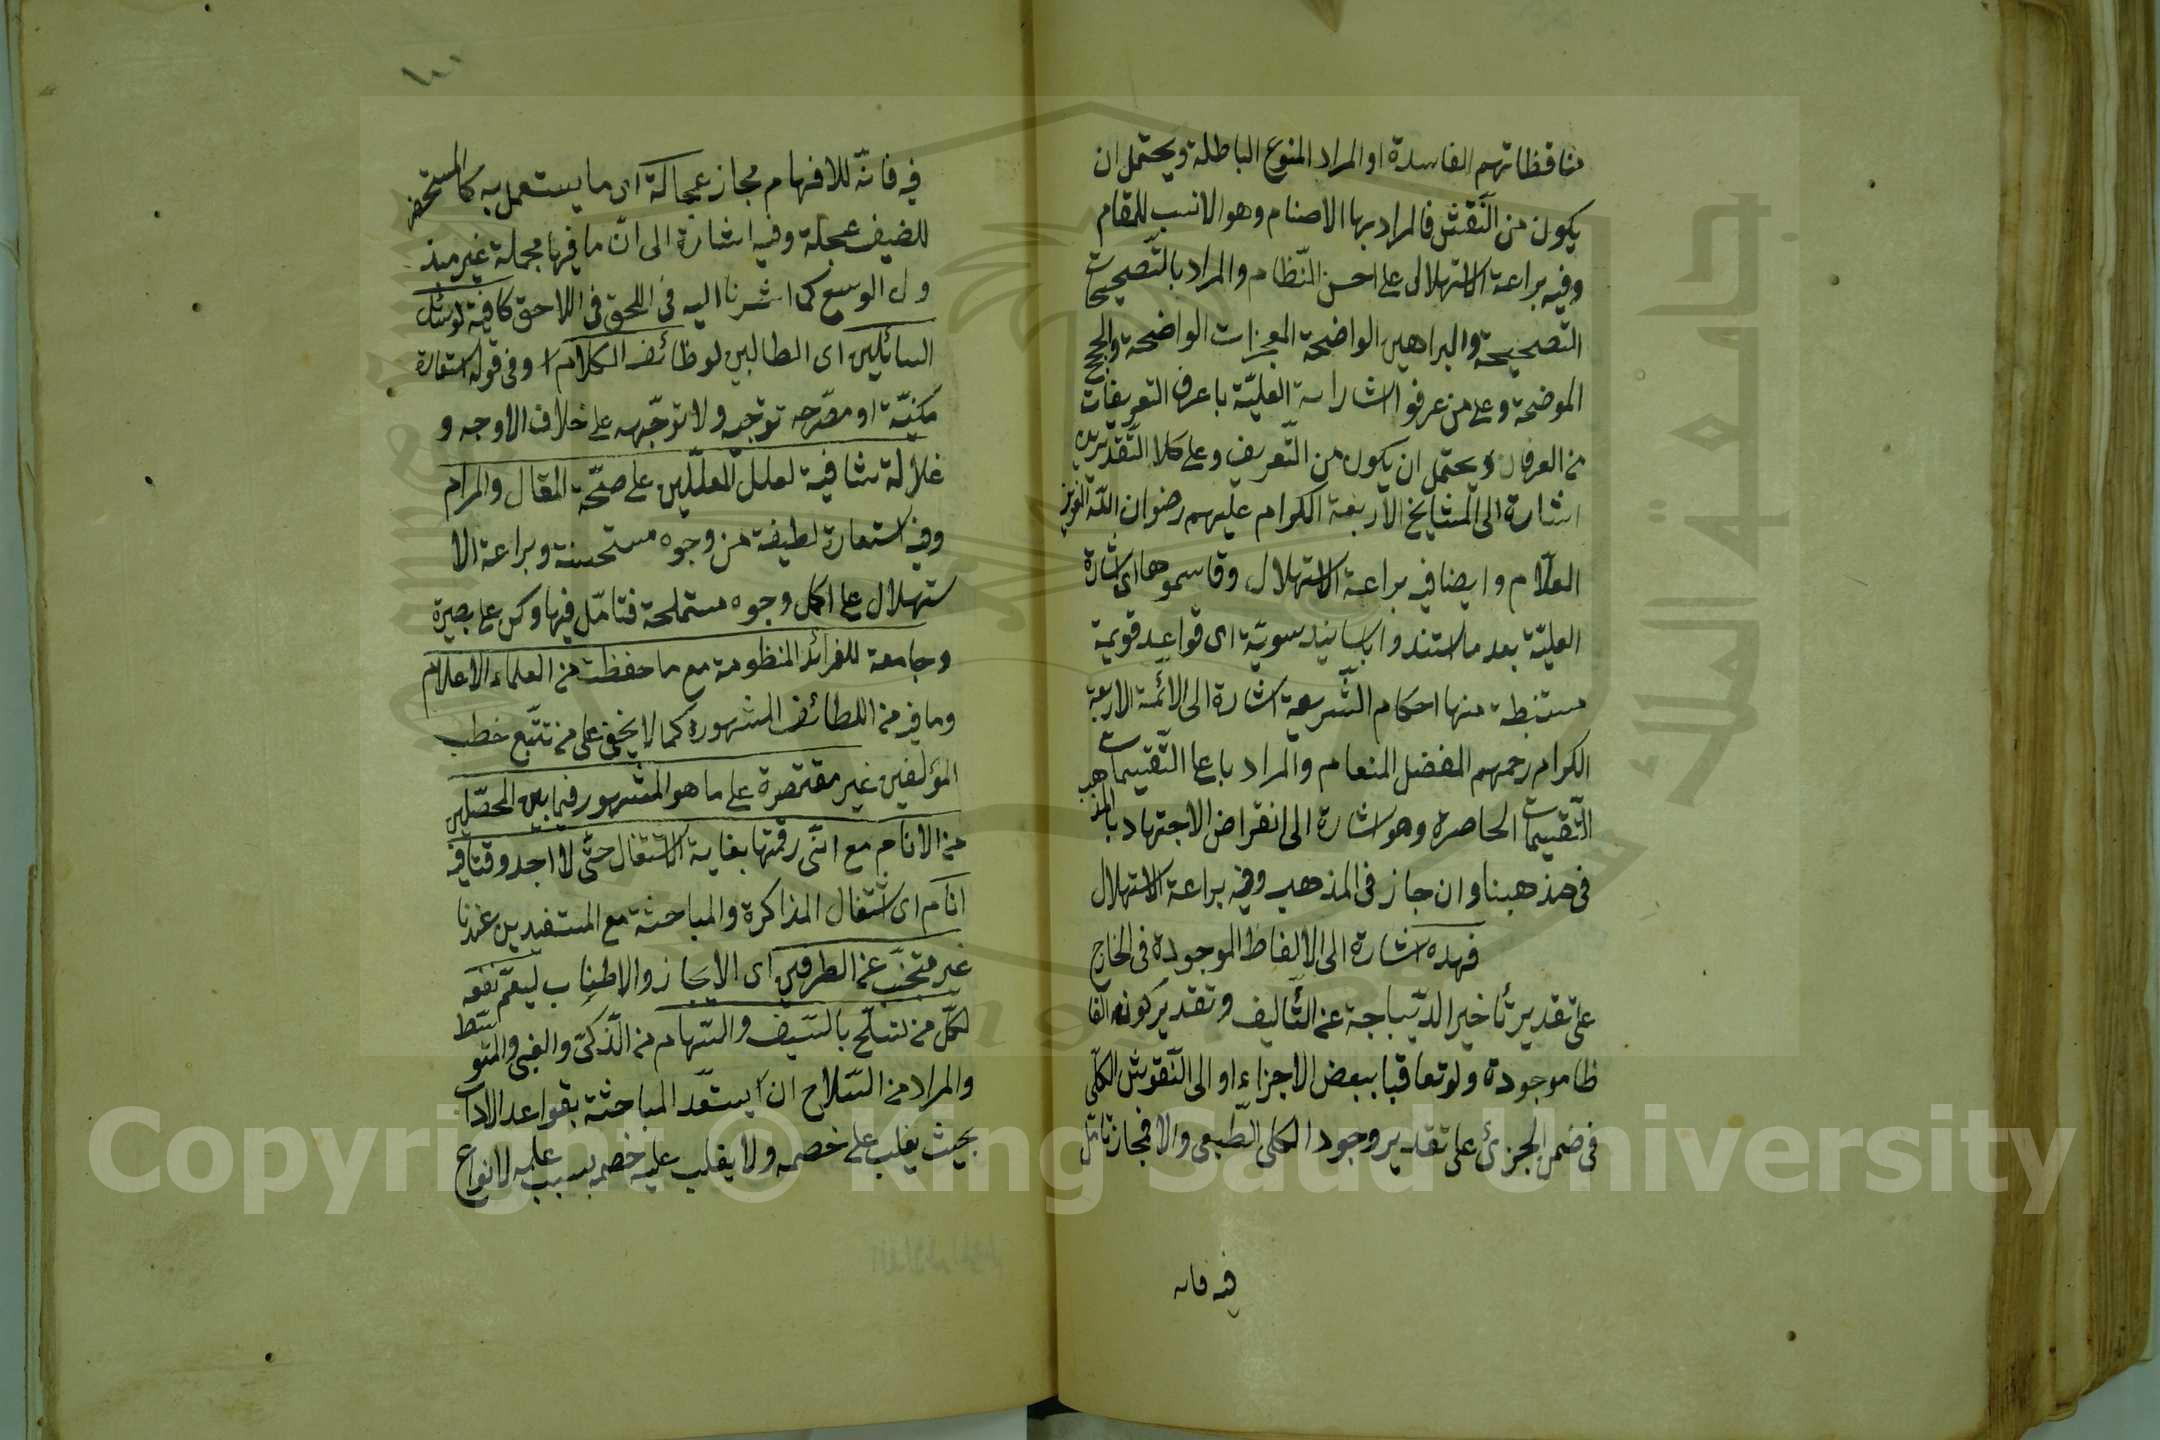 مناقظاتهم الفاسدة او المراد المنوع الباطلة ويحتمل ان
يكون من النّقش فالمراد بها الاصنام وهو الانسب للمقام
وفيه براعة الاستهلال على احسن النّظام والمراد بالتّصحيحات
التصحيحة والبراهين الواضحة المعجزات الواضحة والحجج
الموضحة وعلى من عرفوا اشاراته العليّة باعرف التعريفات
من العرفان ويحتمل ان يكون من التّعريف وعلى كلا التّقديرين
اشارة الى المشايخ الاربعة الكرام عليهم رضوان اللّه العزيز
العلّام وايضا فيه براعة الاستهلال وقاسموها اى اشارة
العليّة بعد ما استندوا باسانيد سويّة اى قواعد قويمة
مستنبطة منها احكام الشّريعة اشارة الى الائمّة الاربعة
الكرام رحمهم المفضل المنعام والمراد باعا التّقسيمات
التّقسيمات الحاصرة وهو اشارة الى انقراض الاجتهاد بالمذهب
فى مذهبنا وان جاز فى المذهب وفيه براعة الاستهلال
فهذه اشارة الى الالفاظ الموجودة فى الخارج
على تقدير تأخير الدّيباجة عن التّأليف وتقدير كونه الفا
ظا موجودة ولو تعاقبا ببعض الاجزاء او الى النّقوش الكلّى
فى ضمن الجزئ على تقدير وجود الكلى الطّبعى والا فمجاز تأمّل
فيه فانه
فيه فانّه للافهام مجاز عجالة اى ما يستعمل به كالمستحضر
للضيف عجلة وفيه اشارة الى انّ ما فيها مجملة غير مبذ
ول الوسع كما اشرنا اليه فى اللحق فى اللاحق كافية لوسائل
السائلين اى الطالبين لوظائف الكلام وفى قوله استعارة
مكنيّة او مصرّحه توجيه ولا توجّهه على خلاف الاوجه و
غلالة شافية لعلل المعلّلين على صحّة المقال والمرام
وفيه استعارة لطيفة من وجوه مستحسنة وبراعة الا
ستهلال على اكمل وجوه مستملحة فتامّل فيها وكن على بصيرة
وجامعة للفرائد المنظومة مع ما حفظت من العلماء الاعلام
وما فيه من اللطائف المشهورة كما لا يخفى على من تتبّع خطب
المؤلفين غير مقتصرة على ما هو المشهور فيما بين المحصّلين
من الانام مع انّى رقمتها بغاية الاشتغال حتّى لا اجد وقتا فيه
انام اى اشتغال المذاكرة والمباحثة مع المستفيدين عندنا
غير متجنّب عن الطرفين اى الايجاز والاطناب ليعمّ نفعه
لكلّ من تسلّح بالسّيف والسّهام من الذّكىّ والغبى والمتوسّط
والمراد من السّلاح ان استعدّ المباحثة بقواعد الاداب
بحيث يغلب على خصمه ولا يغلب عليه خصمه بسبب علمه لانواع
Copyright © King Saud University
جامعة الملك سعود